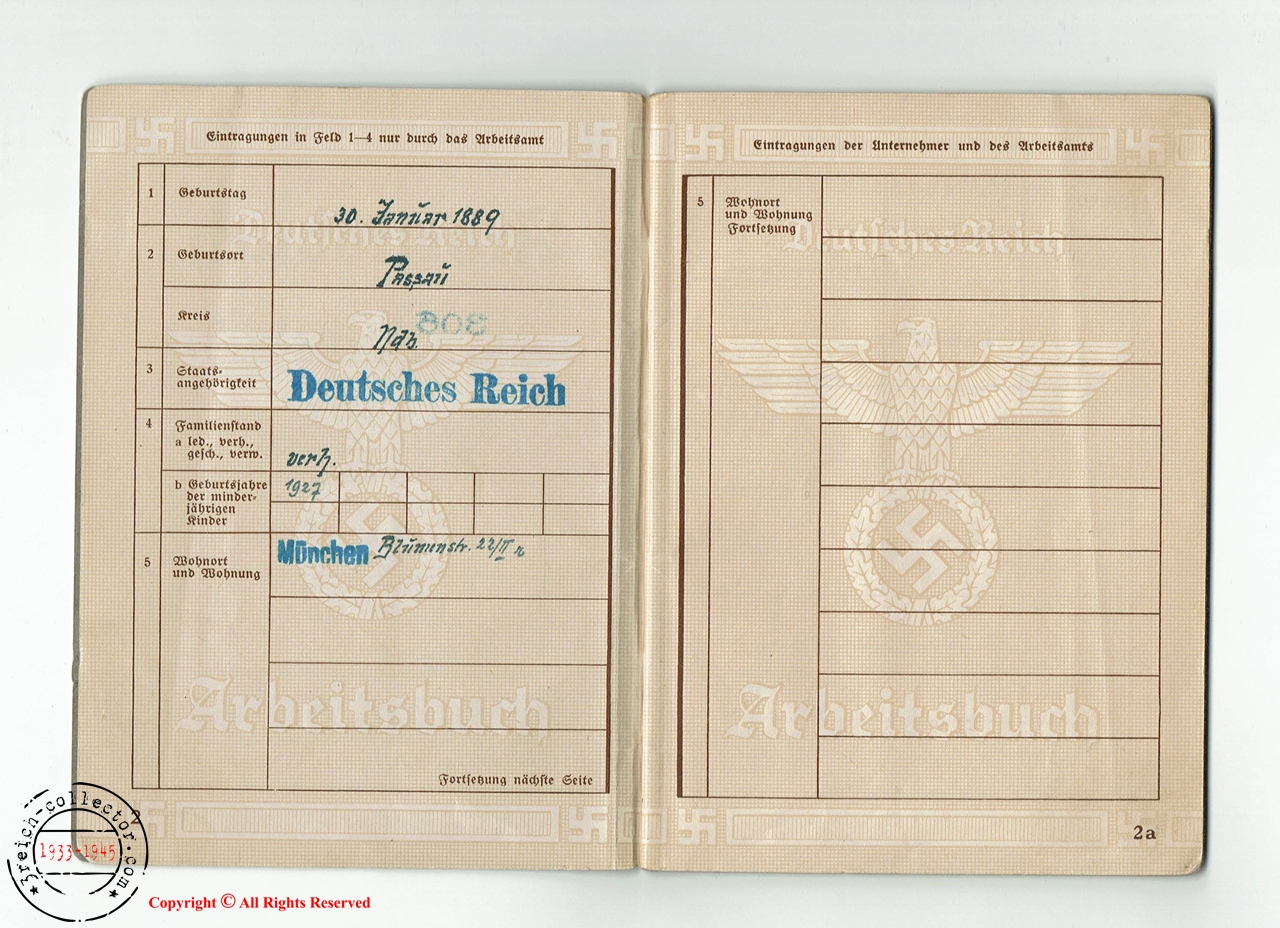 Eintragungen in Feld 1—4 nur durch das Arbeitsamt
1 Geburtstag 30. Januar 1889
2 Geburtsort Passau
Kreis Ndb. 808
3 Staats-
angehörigkeit Deutsches Reich
4 Familienstand
a led., verh.,
gesch., verw. verh.
b Geburtsjahre 1927
der minder-
jährigen
Kinder
5 Wohnort
und Wohnung München Blumenstr. 22/II r
Fortsetzung nächste Seite
2
Deutsches Reich
Arbeitsbuch
Eintragungen der Unternehmer und des Arbeitsamts
5 Wohnort
und Wohnung
Fortsetzung
Deutsches Reich
Arbeitsbuch
2a
3reich-collector.com
1933-1945
Copyright © All Rights Reserved